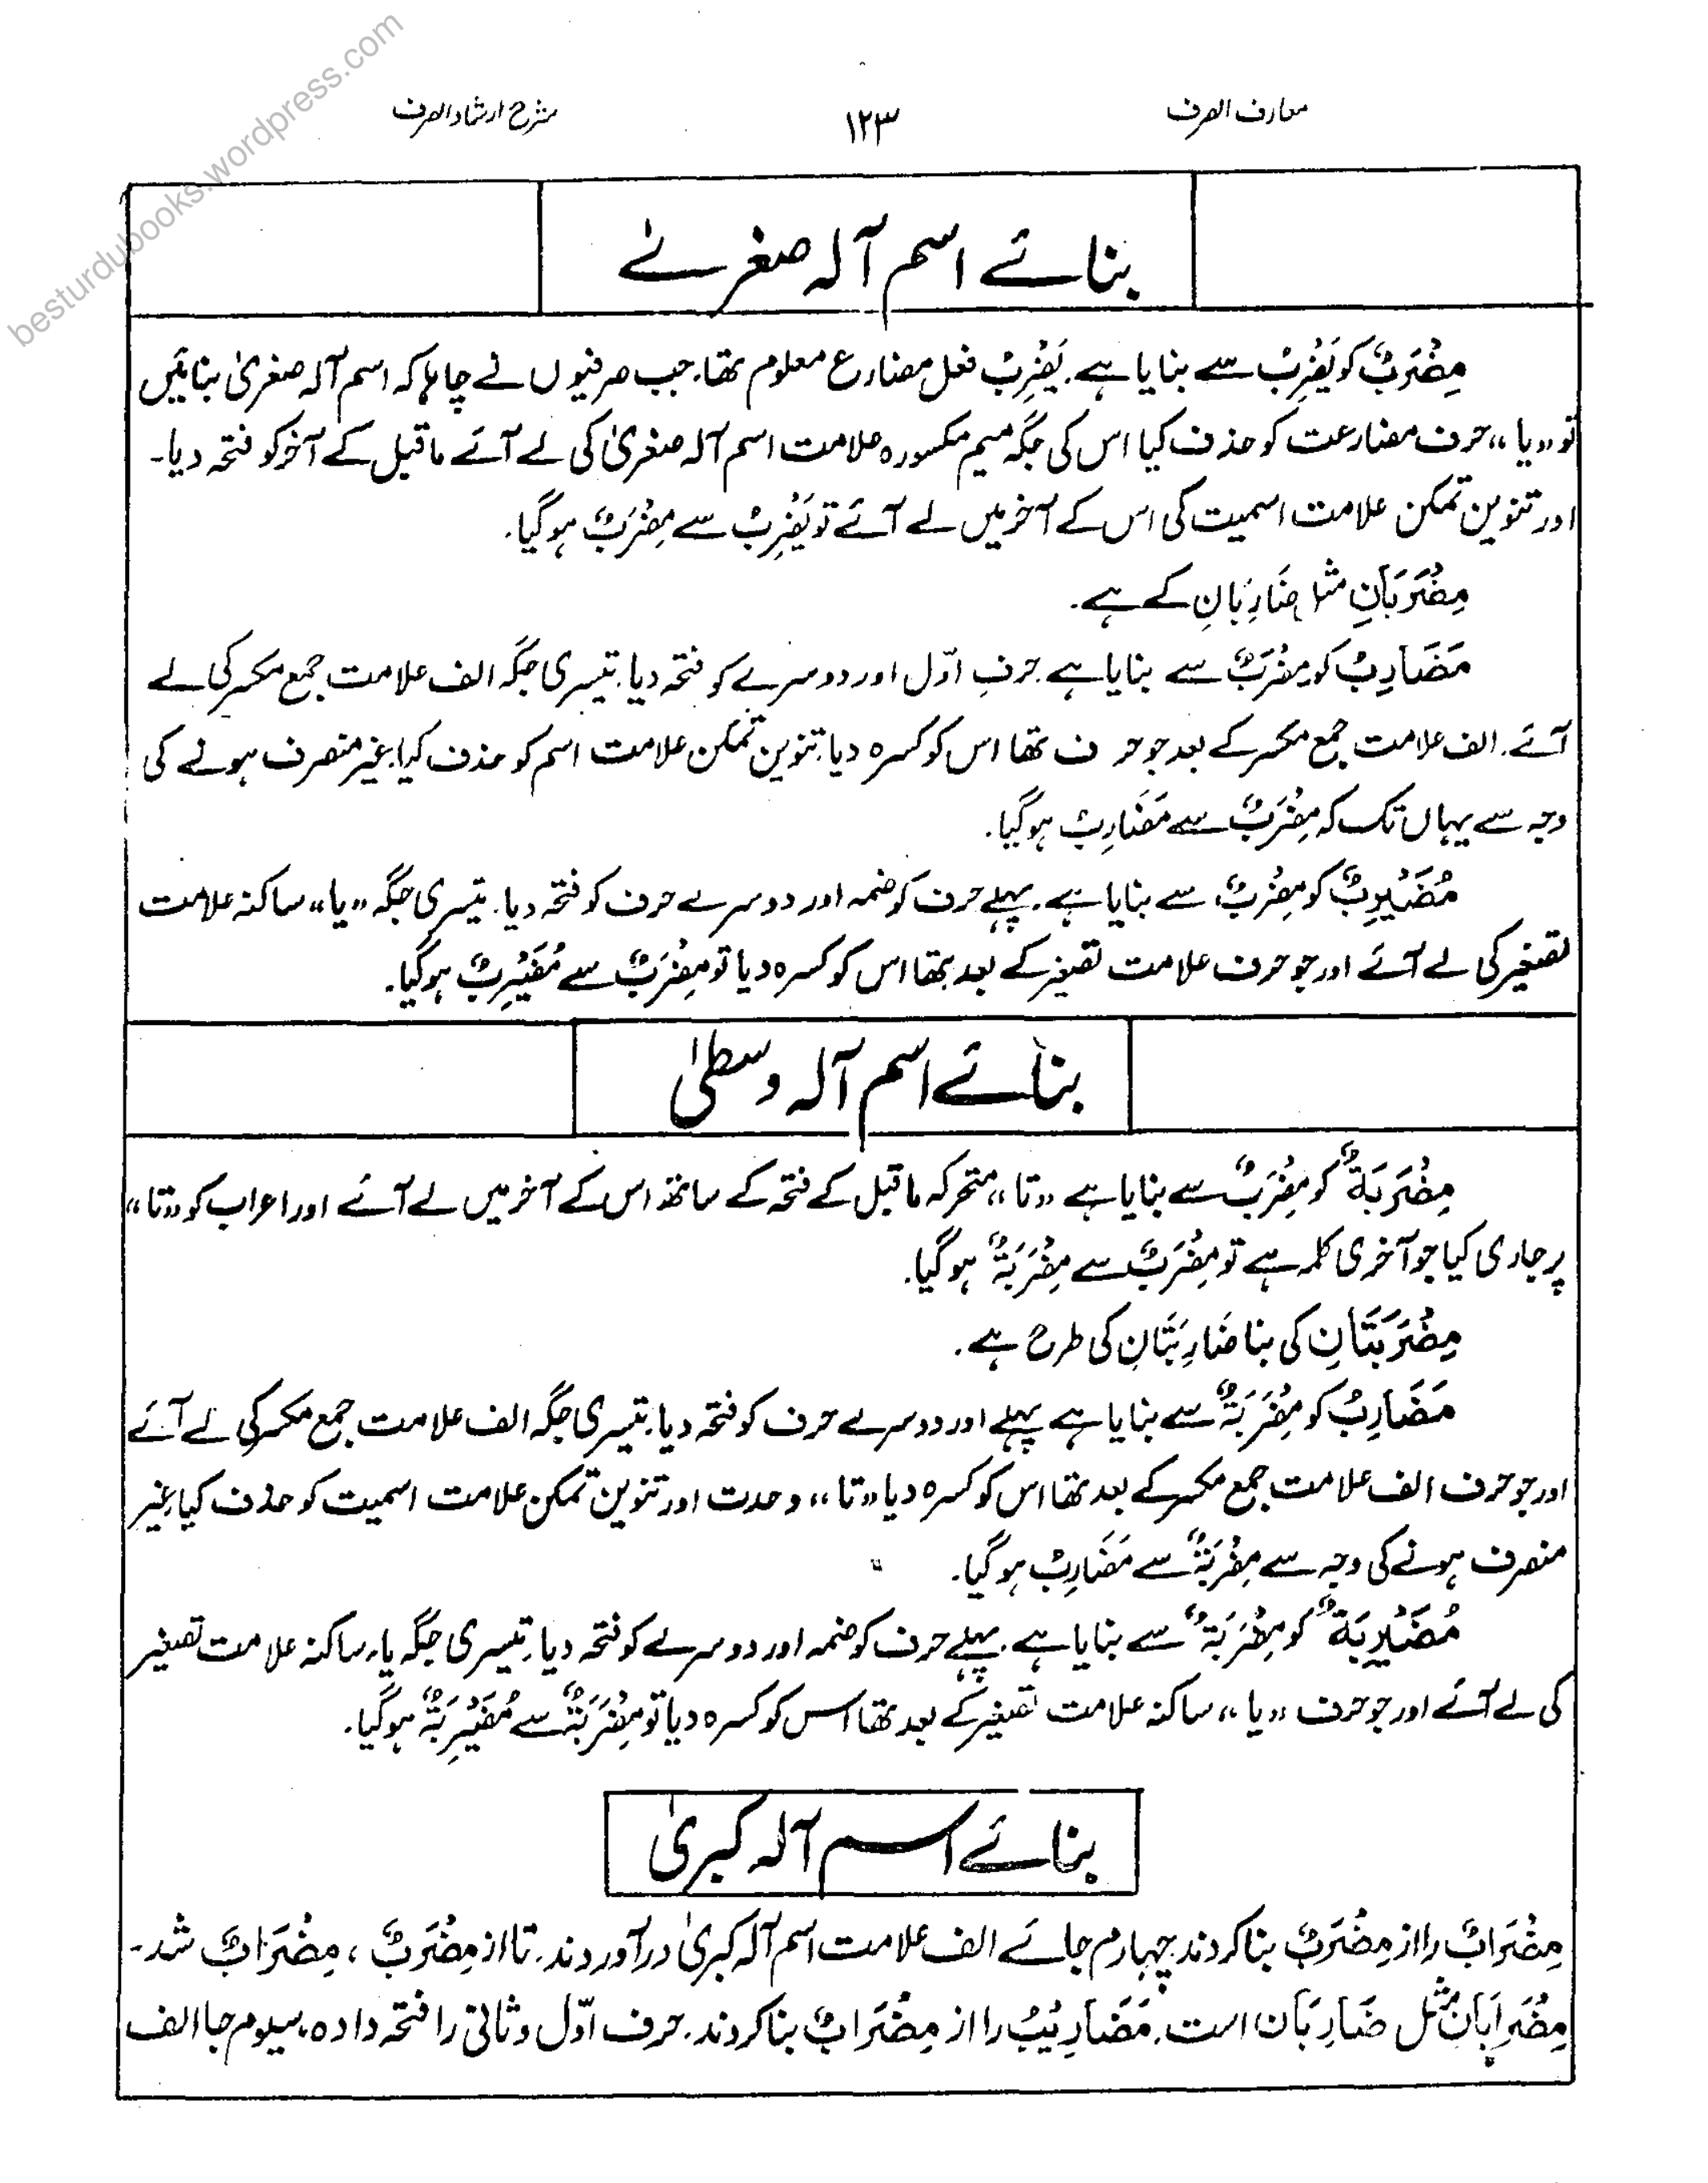 besturdubooks.wordpress.com
معارف الصرف ۱۲۳ شرح ارشاد الصرف
بنائے اسم آلہ صغریٰ
مِضْرَبٌ کو یَضْرِبُ سے بنایا ہے۔ یَضْرِبُ فعل مضارع معلوم تھا۔ جب صرفیوں نے چاہا کہ اسم آلہ صغریٰ بنائیں
تو ،،یا،، حرف مضارعت کو حذف کیا اس کی جگہ میم مکسورہ علامت اسم آلہ صغریٰ کی لے آئے ماقبل کے آخر کو فتحہ دیا۔
اور تنوین تمکن علامت اسمیت کی اس کے آخر میں لے آئے تو یَضْرِبُ سے مِضْرَبٌ ہوگیا۔
مِضْرَبَانِ مثل ضَارِبَانِ کے ہے۔
مَضَارِبُ کو مِضْرَبٌ سے بنایا ہے حرفِ اوّل اور دوسرے کو فتحہ دیا۔ تیسری جگہ الف علامت جمع مکسر کی لے
آئے۔ الف علامت جمع مکسر کے بعد جو حرف تھا اس کو کسرہ دیا۔ تنوین تمکن علامت اسم کو حذف کیا۔ غیر منصرف ہونے کی
وجہ سے یہاں تک کہ مِضْرَبٌ سے مَضَارِبُ ہوگیا۔
مُضَیْرِبٌ کو مِضْرَبٌ سے بنایا ہے۔ پہلے حرف کو ضمہ اور دوسرے حرف کو فتحہ دیا۔ تیسری جگہ ،،یا،، ساکنہ علامت
تصغیر کی لے آئے اور جو حرف علامت تصغیر کے بعد تھا اس کو کسرہ دیا تو مِضْرَبٌ سے مُضَیْرِبٌ ہوگیا۔
بنائے اسم آلہ وسطیٰ
مِضْرَبَةٌ کو مِضْرَبٌ سے بنایا ہے ،،تا،، متحرکہ ماقبل کے فتحہ کے ساتھ اس کے آخر میں لے آئے اور اعراب کو ،،تا،،
پر جاری کیا جو آخری کلمہ ہے تو مِضْرَبٌ سے مِضْرَبَةٌ ہوگیا۔
مِضْرَبَتَانِ کی بنا ضَارِبَتَانِ کی طرح ہے۔
مَضَارِبُ کو مِضْرَبَةٌ سے بنایا ہے پہلے اور دوسرے حرف کو فتحہ دیا۔ تیسری جگہ الف علامت جمع مکسر کی لے آئے
اور جو حرف الف علامت جمع مکسر کے بعد تھا اس کو کسرہ دیا ،،تا،، وحدت اور تنوین تمکن علامت اسمیت کو حذف کیا غیر
منصرف ہونے کی وجہ سے مِضْرَبَةٌ سے مَضَارِبُ ہوگیا۔
مُضَیْرِبَةٌ کو مِضْرَبَةٌ سے بنایا ہے۔ پہلے حرف کو ضمہ اور دوسرے کو فتحہ دیا۔ تیسری جگہ یاء ساکنہ علامت تصغیر
کی لے آئے اور جو حرف ،،یا،، ساکنہ علامت تصغیر کے بعد تھا اس کو کسرہ دیا تو مِضْرَبَةٌ سے مُضَیْرِبَةٌ ہوگیا۔
بنائے اسم آلہ کبریٰ
مِضْرَابٌ را از مِضْرَبٌ بنا کردند چہارم جائے الف علامت اسم آلہ کبریٰ درآوردند۔ تا از مِضْرَبٌ ، مِضْرَابٌ شد۔
مِضْرَابَانِ مثل ضَارِبَان است۔ مَضَارِیْبُ را از مِضْرَابٌ بنا کردند۔ حرف اوّل وثانی را فتحہ دادہ، سیوم جا الف